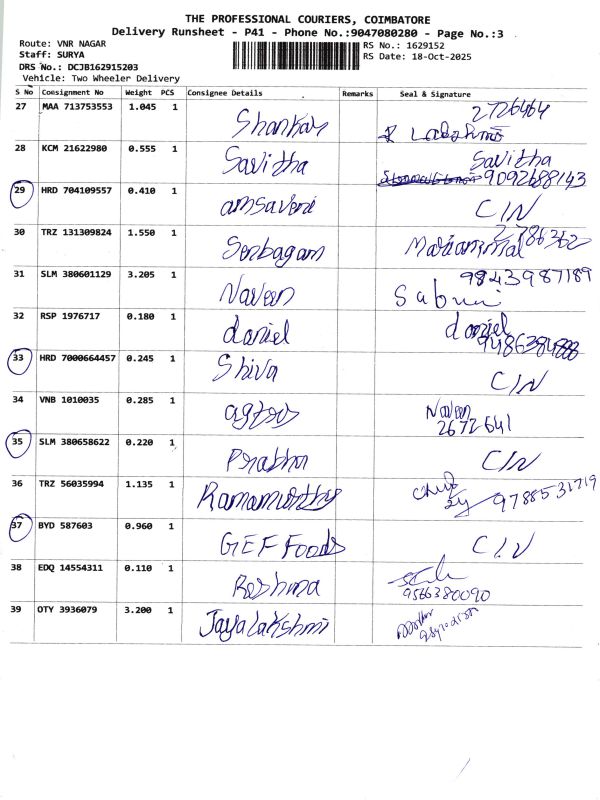 THE PROFESSIONAL COURIERS, COIMBATORE
Delivery Runsheet - P41 - Phone No.:9047080280 - Page No.:3
Route: VNR NAGAR
Staff: SURYA
DRS No.: DCJB162915203
Vehicle: Two Wheeler Delivery
RS No.: 1629152
RS Date: 18-Oct-2025
S No Consignment No Weight PCS Consignee Details Remarks Seal & Signature
27 MAA 713753553 1.045 1 Shankar 2726464
Lakshmi
28 KCM 21622980 0.555 1 Savitha Savitha
9092688143
29 HRD 704109557 0.410 1 amsaveni C/N
30 TRZ 131309824 1.550 1 Senbagam Mariammal
31 SLM 380601129 3.205 1 Naveen 9843987189
32 RSP 1976717 0.180 1 daniel daniel
33 HRD 7000664457 0.245 1 Shiva C/N
34 VNB 1010035 0.285 1 Naveen
2672641
35 SLM 380658622 0.220 1 Prabhu C/N
36 TRZ 56035994 1.135 1 Ramamurthy 9788531719
37 BYD 587603 0.960 1 GEF Foods C/N
38 EDQ 14554311 0.110 1 Reshma
9566380090
39 OTY 3936079 3.200 1 Jayalakshmi